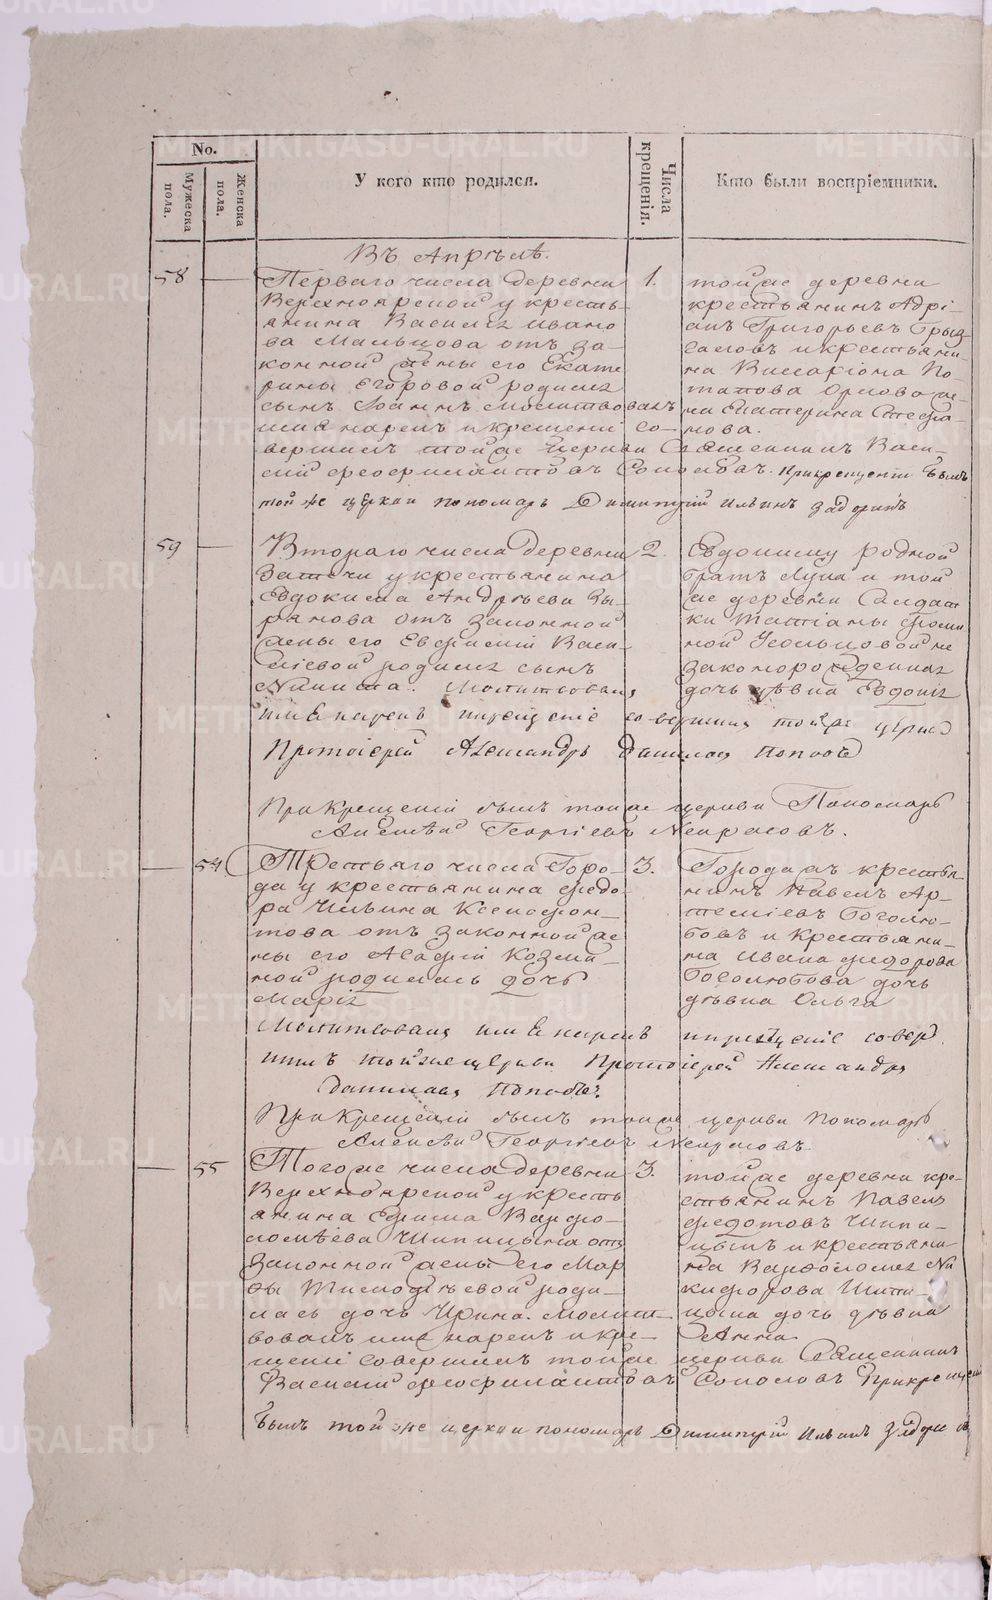 No.
Мужеска пола.
Женска пола.
У кого кто родился.
Числа крещенія.
Кто были воспріемники.
Въ Апрѣлѣ.
58
Перваго числа деревни
Верхнояреной у кресть-
янина Василья Ивано
ва Мальцова отъ за-
конной жены его Екате
рины Егоровой родился
сынъ Іоаннъ молитвовалъ
имя нарекъ и крещеніе со-
вершилъ тойже церкви Священникъ Васи-
лій Феофилактовъ Соколовъ. При крещеніи былъ
той же церкви пономарь Димитрій Ильинъ Задоринъ
1.
тойже деревни
крестьянинъ Адрі-
анъ Григорьевъ
и крестьяни-
на Виссаріона По-
тапова Орлова же-
на Екатерина Стефа-
нова.
59
Втораго числа деревни
Затечи у крестьянина
Евдокима Андрѣева Зы-
рянова отъ законной
жены его Евфиміи Васи-
лiевой родился сынъ
Никита. Молитвовалъ
имя нарекъ и крещеніе совершилъ тойже церкви
Протоіерей Александръ Даниловъ Поповъ
При крещеніи былъ тойже церкви Пономарь
Алексѣй Георгіевъ Некрасовъ.
2.
Евдокиму родной
братъ Лука и той
же деревни Солдат
ки Татіаны Фоми
ной незаконорожденная
дочь дѣвка Евдокія
54
Третьяго числа Горо-
да у крестьянина Федо-
ра Ильина Ксенофон-
това отъ законной же
ны его Агафіи Козми-
ной родилась дочь
Марія
Молитвовалъ имя нарекъ и крещеніе совер
шилъ тойже церкви Протоіерей Александръ
Даниловъ Поповъ.
При крещеніи былъ тойже церкви Пономарь
Алексѣй Георгіевъ Некрасовъ.
3.
Города жъ крестья-
нинъ Павелъ Ар-
теміевъ Боголю-
бовъ и крестьяни-
на Ивана Федорова
Боголюбова дочь
дѣвка Ольга
55
Тогоже числа деревни
Верхнояреной у кресть
янина Ефима Варфо-
ломѣева Шипицына отъ
законной жены его Мар
ѳы Тимофѣевой роди-
лась дочь Ирина. Молит
вовалъ имя нарекъ и кре-
щеніе совершилъ тойже церкви Священникъ
Василій Феофилактовъ Соколовъ При крещеніи
былъ той же церкви пономарь Димитрій Ильинъ Задоринъ
3.
тойже деревни кре-
стьянинъ Павелъ
Федотовъ Шипи-
цынъ и крестьяни
на Варфоломея Ни
кифорова Шипи-
цына дочь дѣвка
Анна